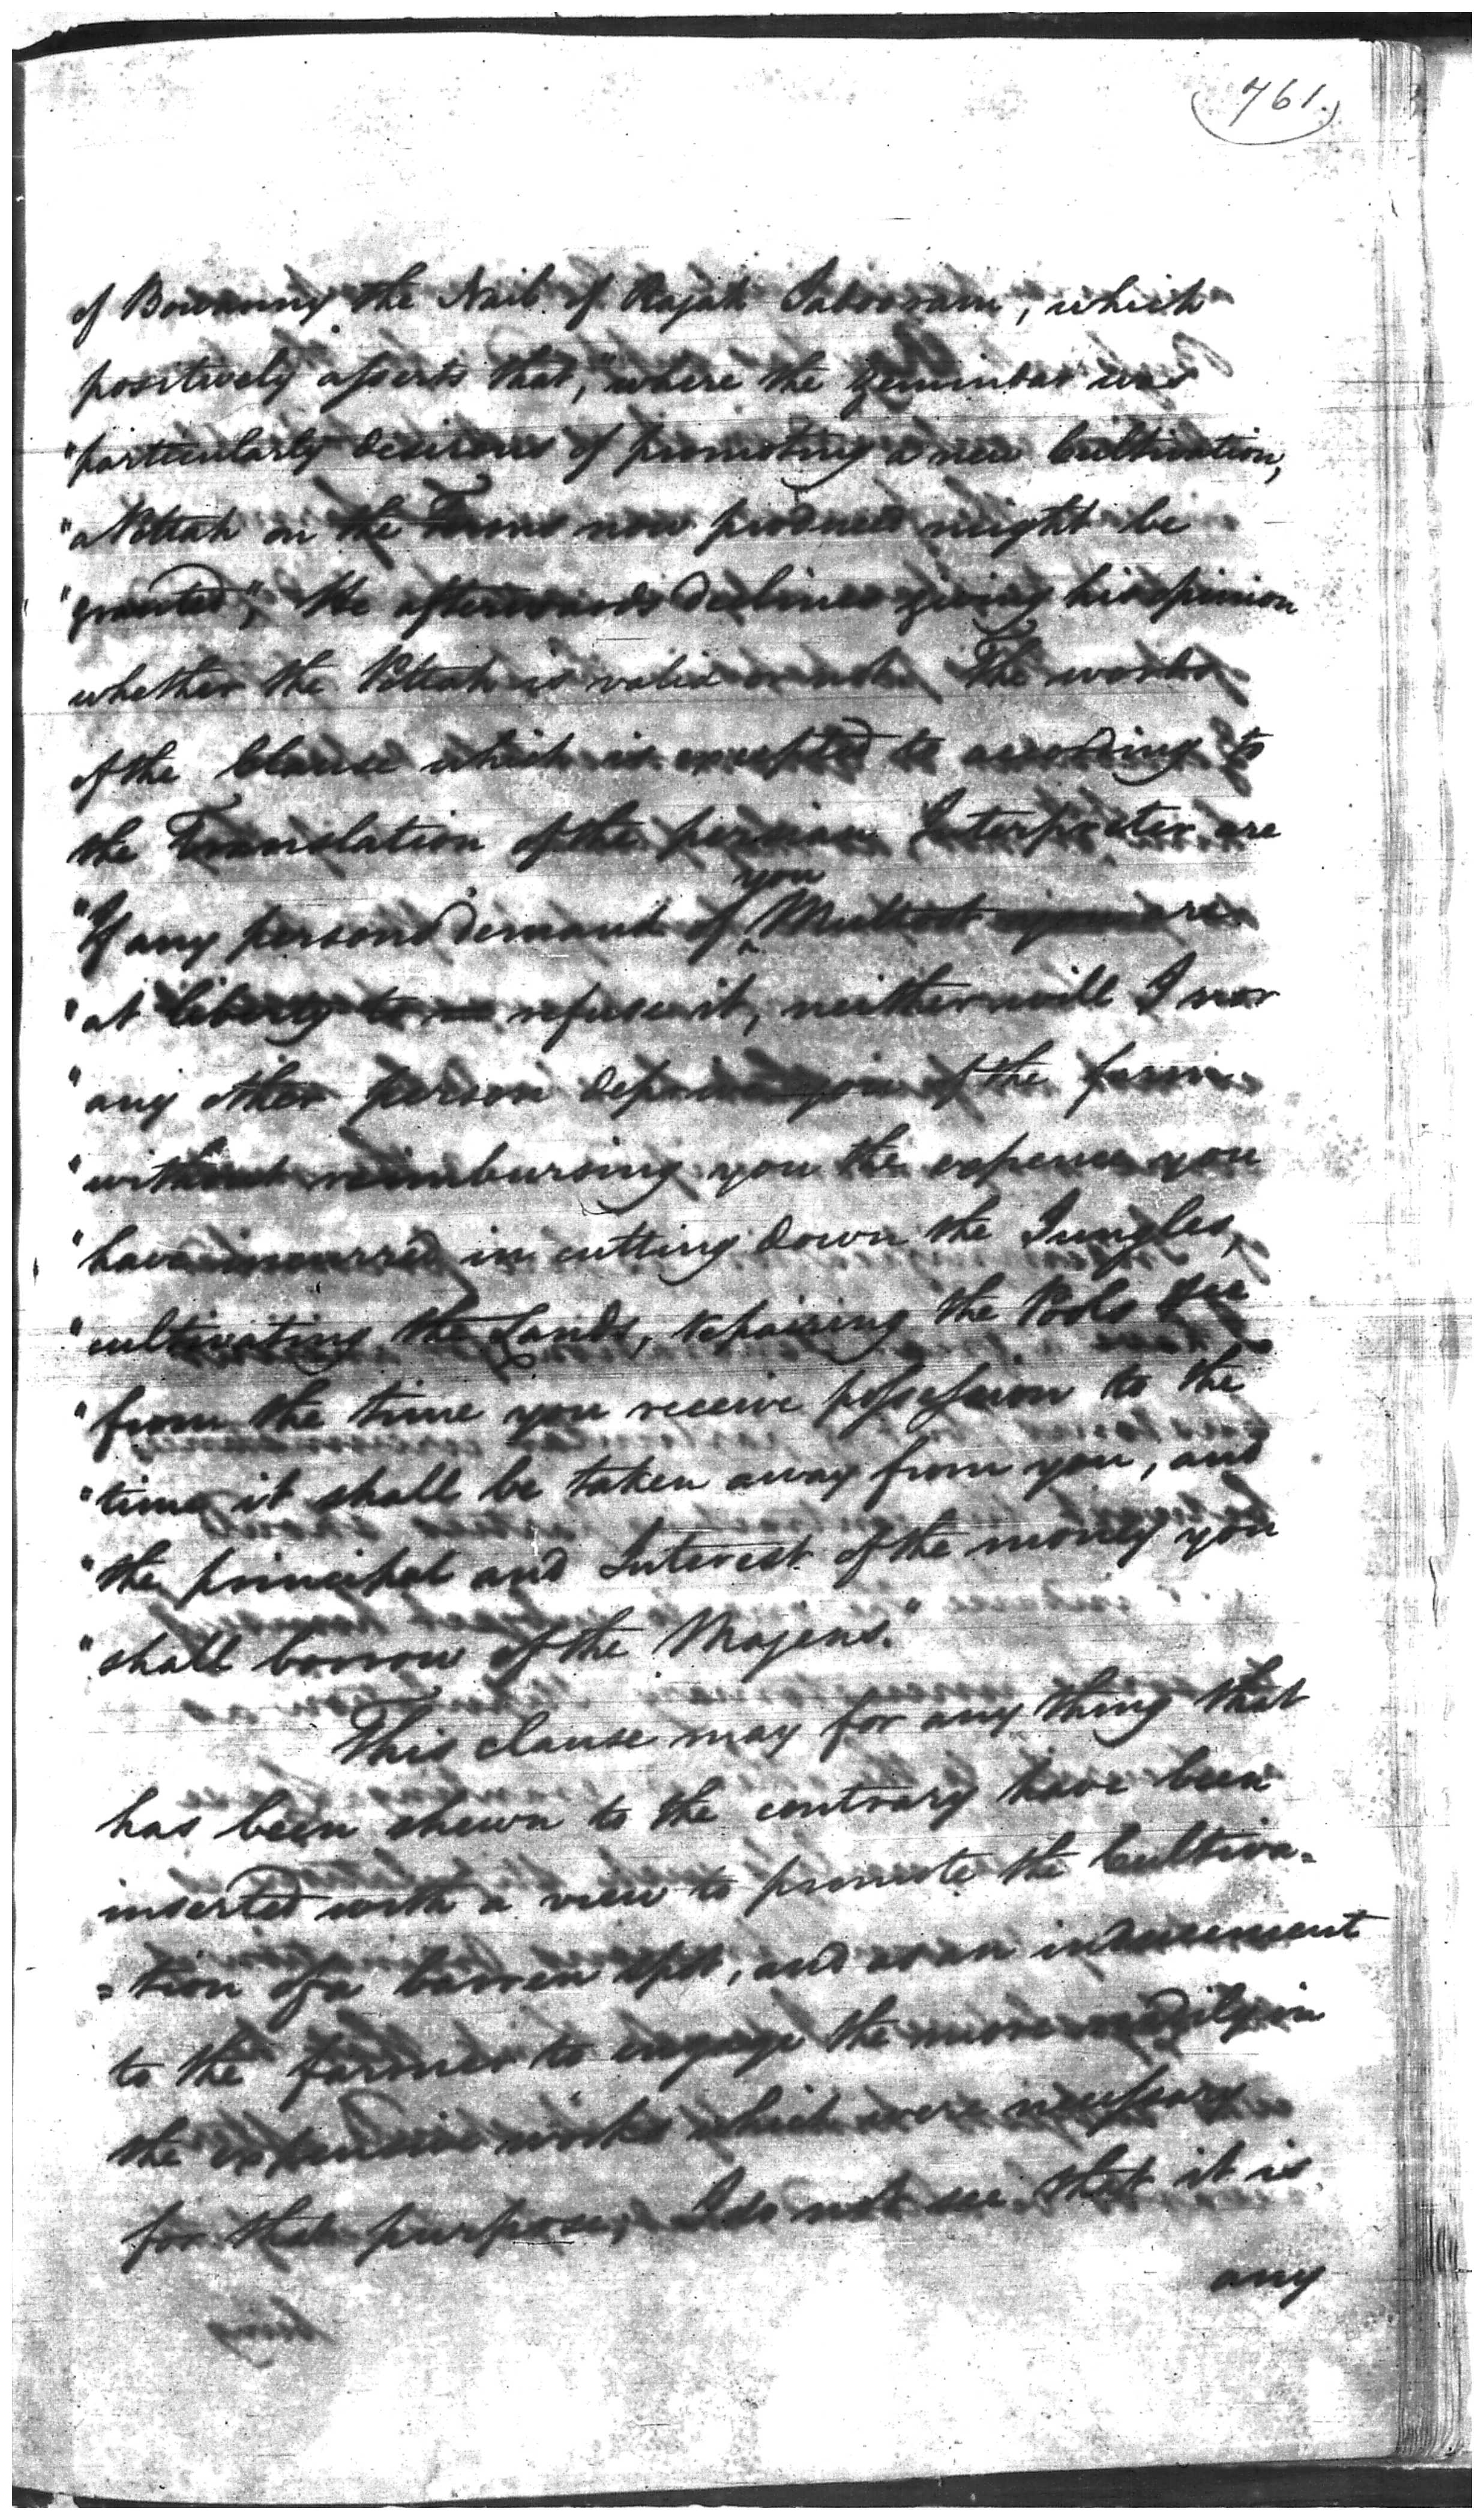 761.
of Bowanny the Naib of Rajah
positively asserts that, "where the zemindar was
"particularly desirous of promoting a new Cultivation,
"a Pottah on the Terms now produced might be
"granted", He afterwards declines giving his opinion
whether the Pottah is valid or not, The words
of the Clause which is excepted to according to
the Translation of the persian Interpreter are
"If any persons demand of you are
"at liberty to refuse it, neither will I nor
"any other person deprive you of the farm
"without reimbursing you the expence you
"have incurred in cutting down the Jungles,
"cultivating the Lands, repairing the Pools
"from the time you receive possession to the
"time it shall be taken away from you, and
"the principal and Interest of the money you
"shall borrow of the Majens."
This clause may for any thing that
has been shewn to the contrary have been
inserted with a view to promote the Cultiva=
=tion of a barren spot, and as an inducement
to the farmer to engage the more readily in
the expensive works which were necessary
for that purpose, I do not see that it is
any